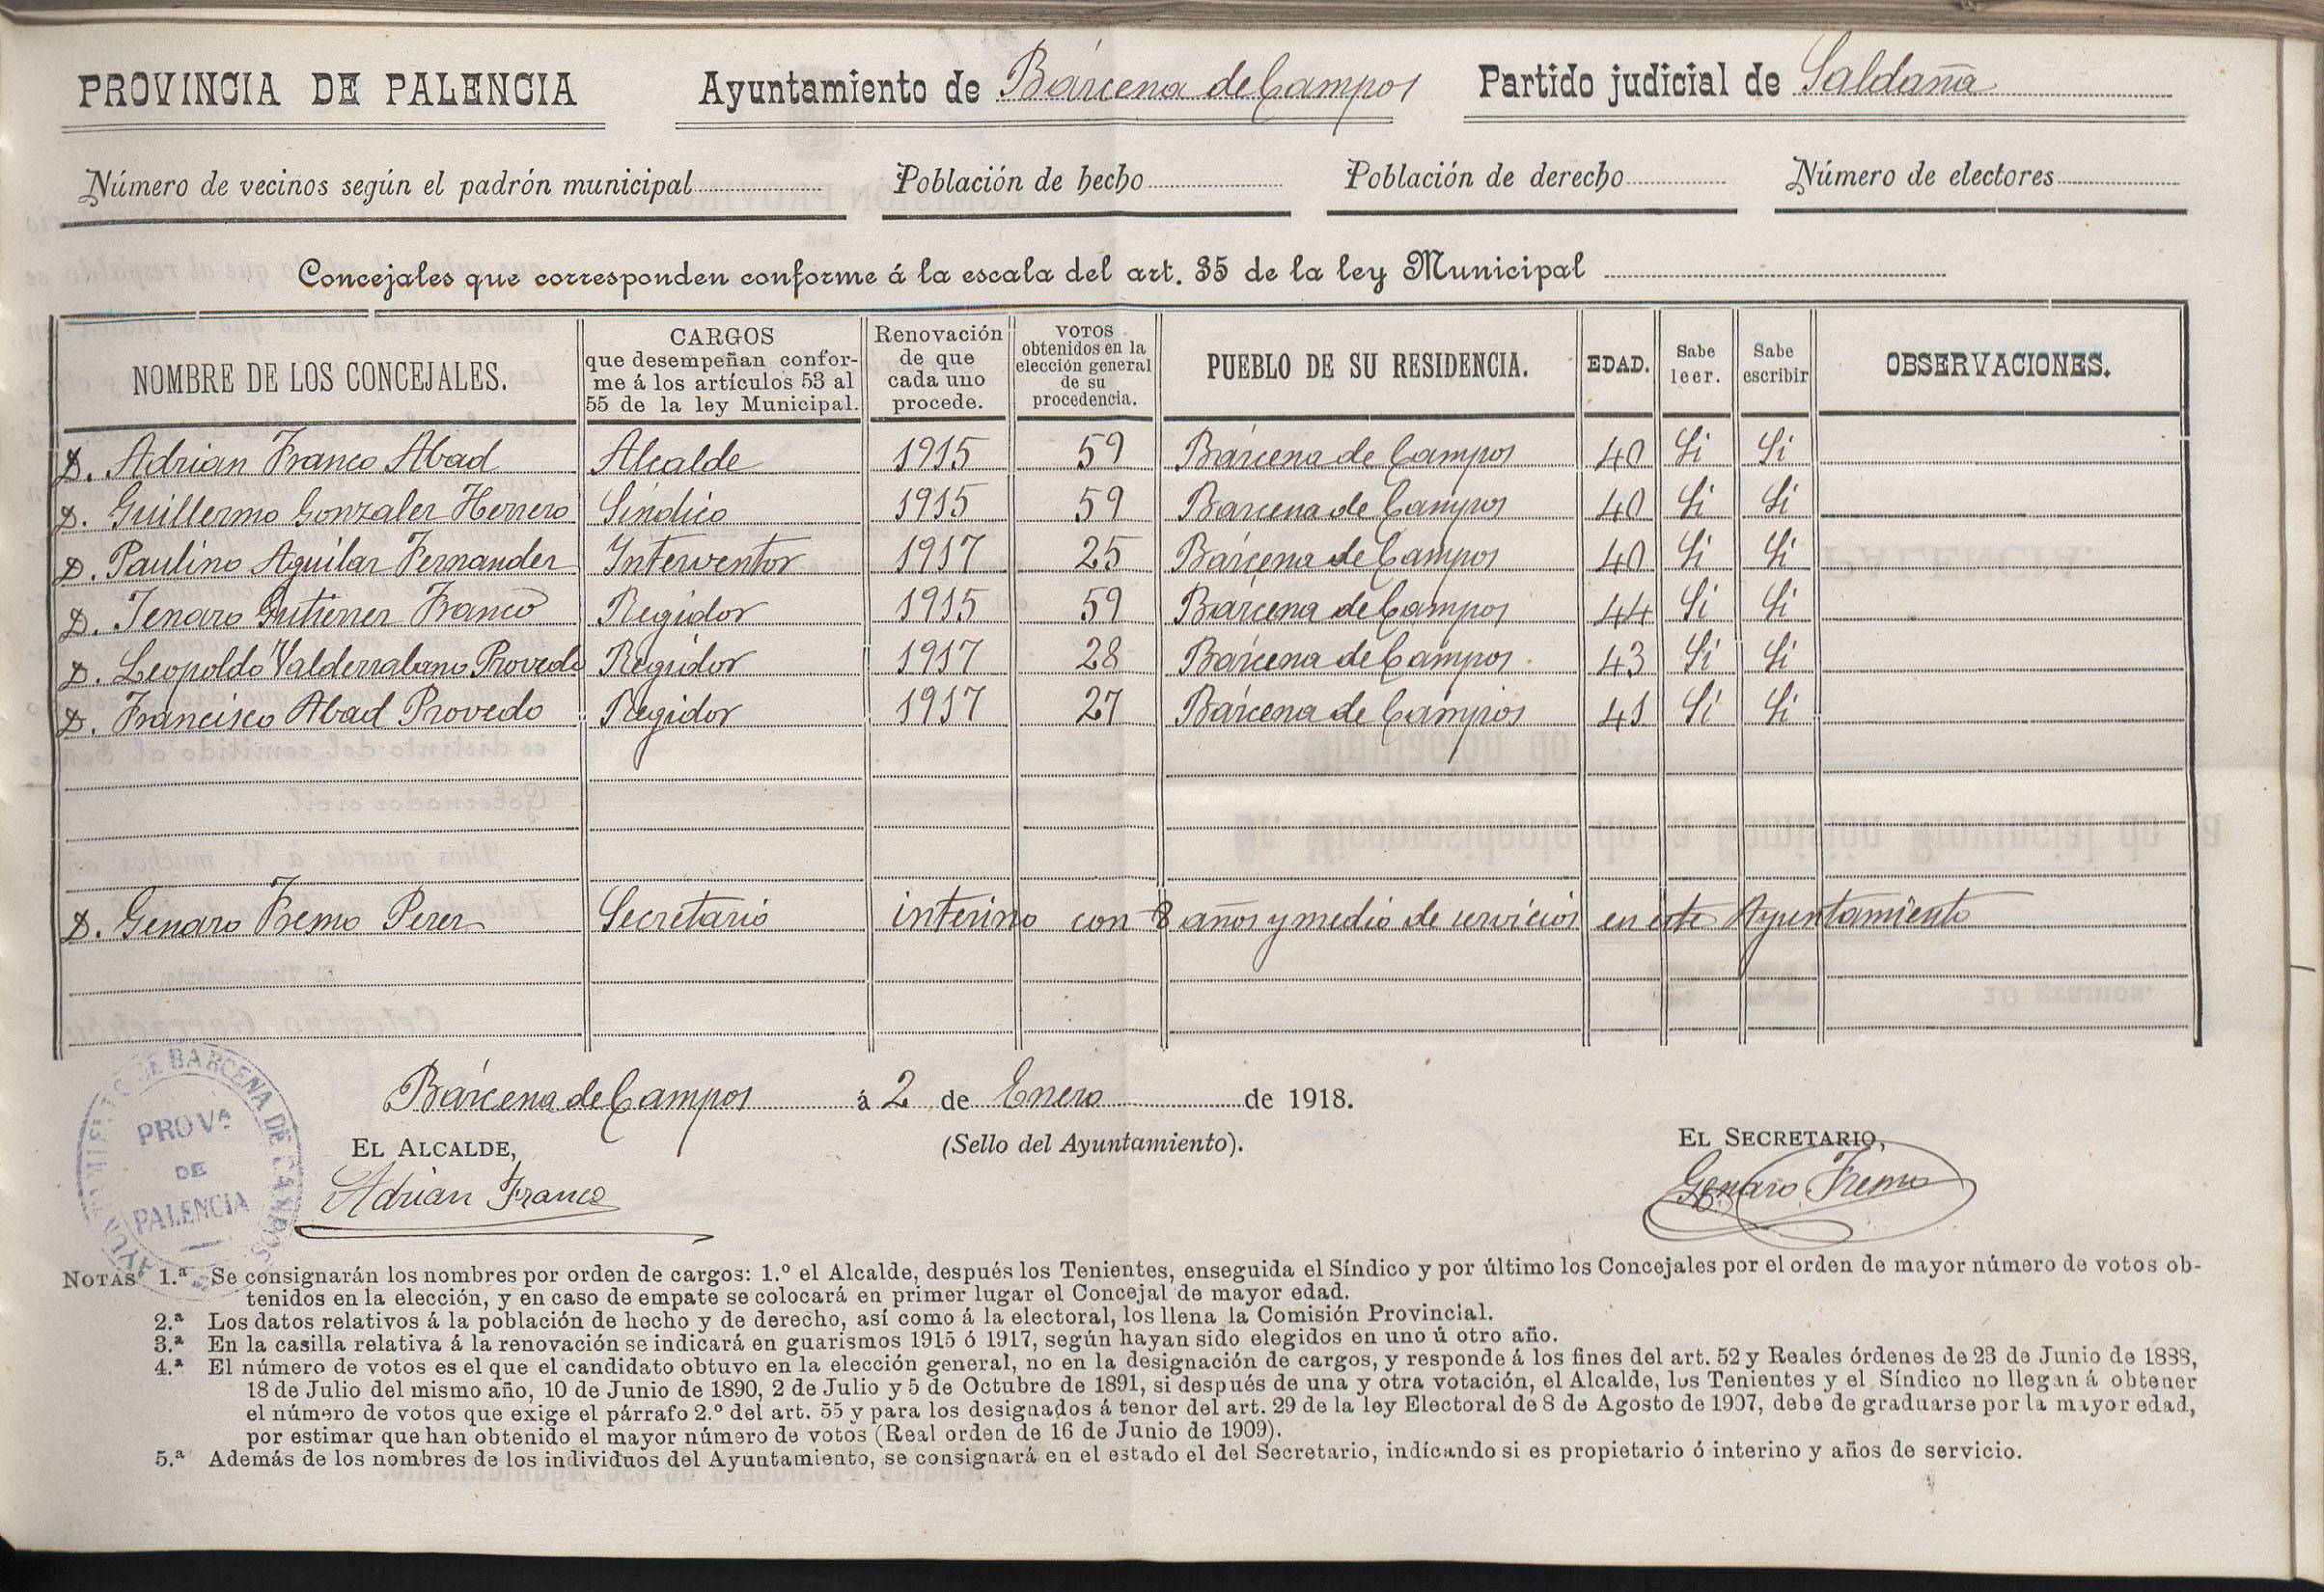 PROVINCIA DE PALENCIA Ayuntamiento de Bárcena de Campos Partido judicial de Saldaña
Número de vecinos según el padrón municipal Población de hecho Población de derecho Número de electores
Concejales que corresponden conforme á la escala del art. 35 de la ley Municipal
NOMBRE DE LOS CONCEJALES. CARGOS que desempeñan conforme á los artículos 53 al 55 de la ley Municipal. Renovación de que cada uno procede. VOTOS obtenidos en la elección general de su procedencia. PUEBLO DE SU RESIDENCIA. EDAD. Sabe leer. Sabe escribir OBSERVACIONES.
D. Adrian Franco Abad Alcalde 1915 59 Bárcena de Campos 40 Si Si
D. Guillermo Gonzalez Herrero Sindico 1915 59 Barcena de Campos 40 Si Si
D. Paulino Aguilar Fernandez Interventor 1917 25 Bárcena de Campos 40 Si Si
D. Jenaro Gutierrez Franco Regidor 1915 59 Bárcena de Campos 44 Si Si
D. Leopoldo Valderrabano Provedo Regidor 1917 28 Bárcena de Campos 43 Si Si
D. Francisco Abad Provedo Regidor 1917 27 Bárcena de Campos 41 Si Si
D. Genaro Fremo Perez Secretario interino con 8 años y medio de servicios en este Ayuntamiento
Bárcena de Campos á 2 de Enero de 1918.
EL ALCALDE, (Sello del Ayuntamiento). EL SECRETARIO,
Adrian Franco Genaro Fremo
AYUNTAMIENTO DE BARCENA DE CAMPOS
PROVª
DE
PALENCIA
NOTAS 1.ª Se consignarán los nombres por orden de cargos: 1.º el Alcalde, después los Tenientes, enseguida el Síndico y por último los Concejales por el orden de mayor número de votos ob-
tenidos en la elección, y en caso de empate se colocará en primer lugar el Concejal de mayor edad.
2.ª Los datos relativos á la población de hecho y de derecho, así como á la electoral, los llena la Comisión Provincial.
3.ª En la casilla relativa á la renovación se indicará en guarismos 1915 ó 1917, según hayan sido elegidos en uno ú otro año.
4.ª El número de votos es el que el candidato obtuvo en la elección general, no en la designación de cargos, y responde á los fines del art. 52 y Reales órdenes de 23 de Junio de 1888,
18 de Julio del mismo año, 10 de Junio de 1890, 2 de Julio y 5 de Octubre de 1891, si después de una y otra votación, el Alcalde, los Tenientes y el Síndico no llegan á obtener
el número de votos que exige el párrafo 2.º del art. 55 y para los designados á tenor del art. 29 de la ley Electoral de 8 de Agosto de 1907, debe de graduarse por la mayor edad,
por estimar que han obtenido el mayor número de votos (Real orden de 16 de Junio de 1909).
5.ª Además de los nombres de los individuos del Ayuntamiento, se consignará en el estado el del Secretario, indicando si es propietario ó interino y años de servicio.